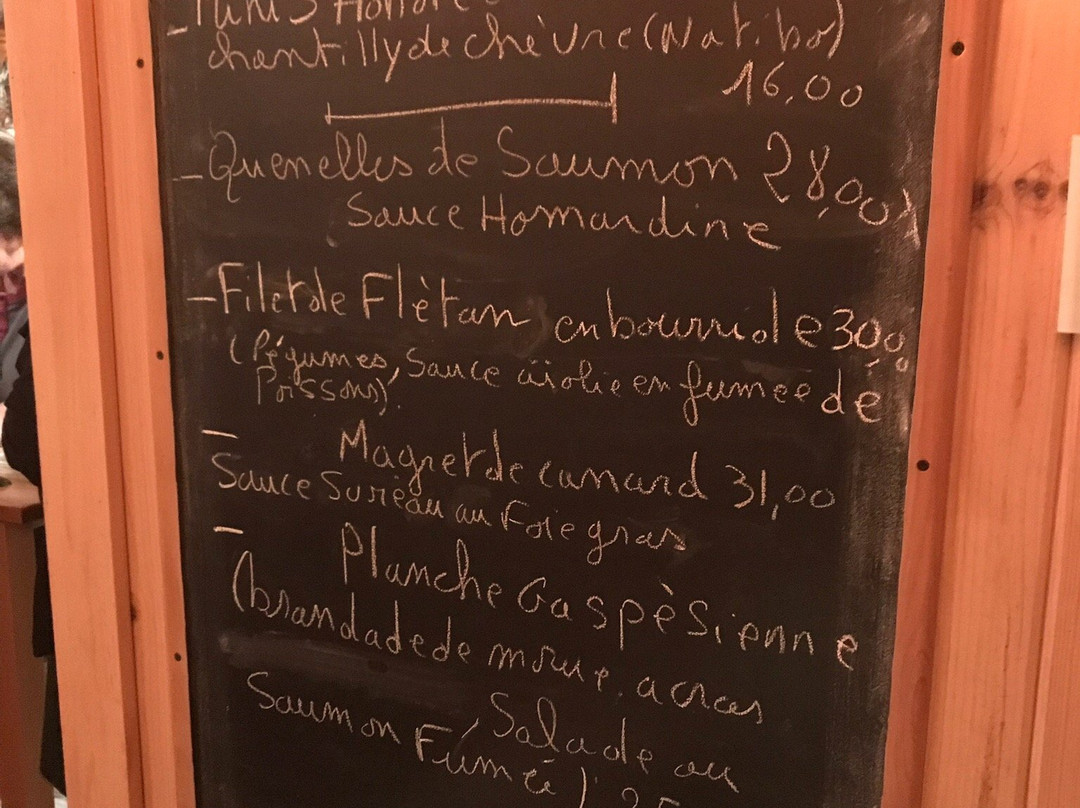 - Minis Honoré
chantilly de chèvre (Natibo)
16,00
- Quenelles de Saumon 28,00
Sauce Homardine
- Filet de Flètan en bourride 30,00
(légumes, Sauce aïolie en fumee de
Poissons).
- Magret de canard 31,00
Sauce Sureau au Foie gras
- Planche Gaspèsienne
(brandade de morue, acras
Salade au
Saumon Fumé)